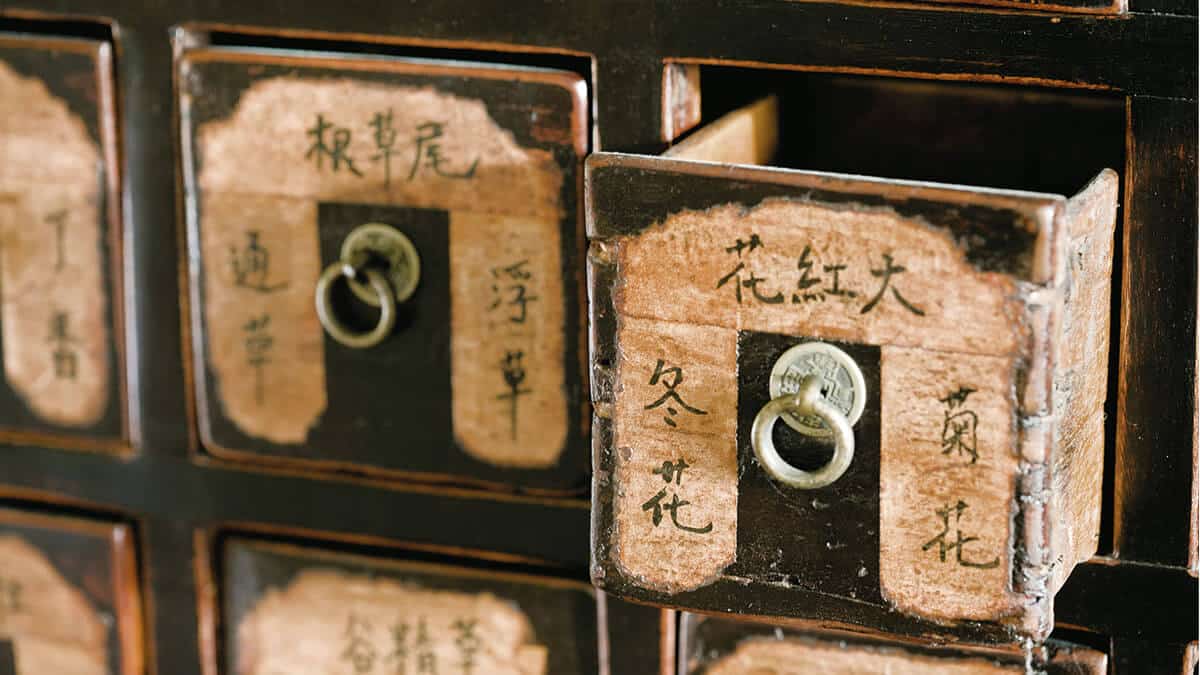 尾草根
浮草
通草
大紅花
菊花
冬花
丁香
谷精草